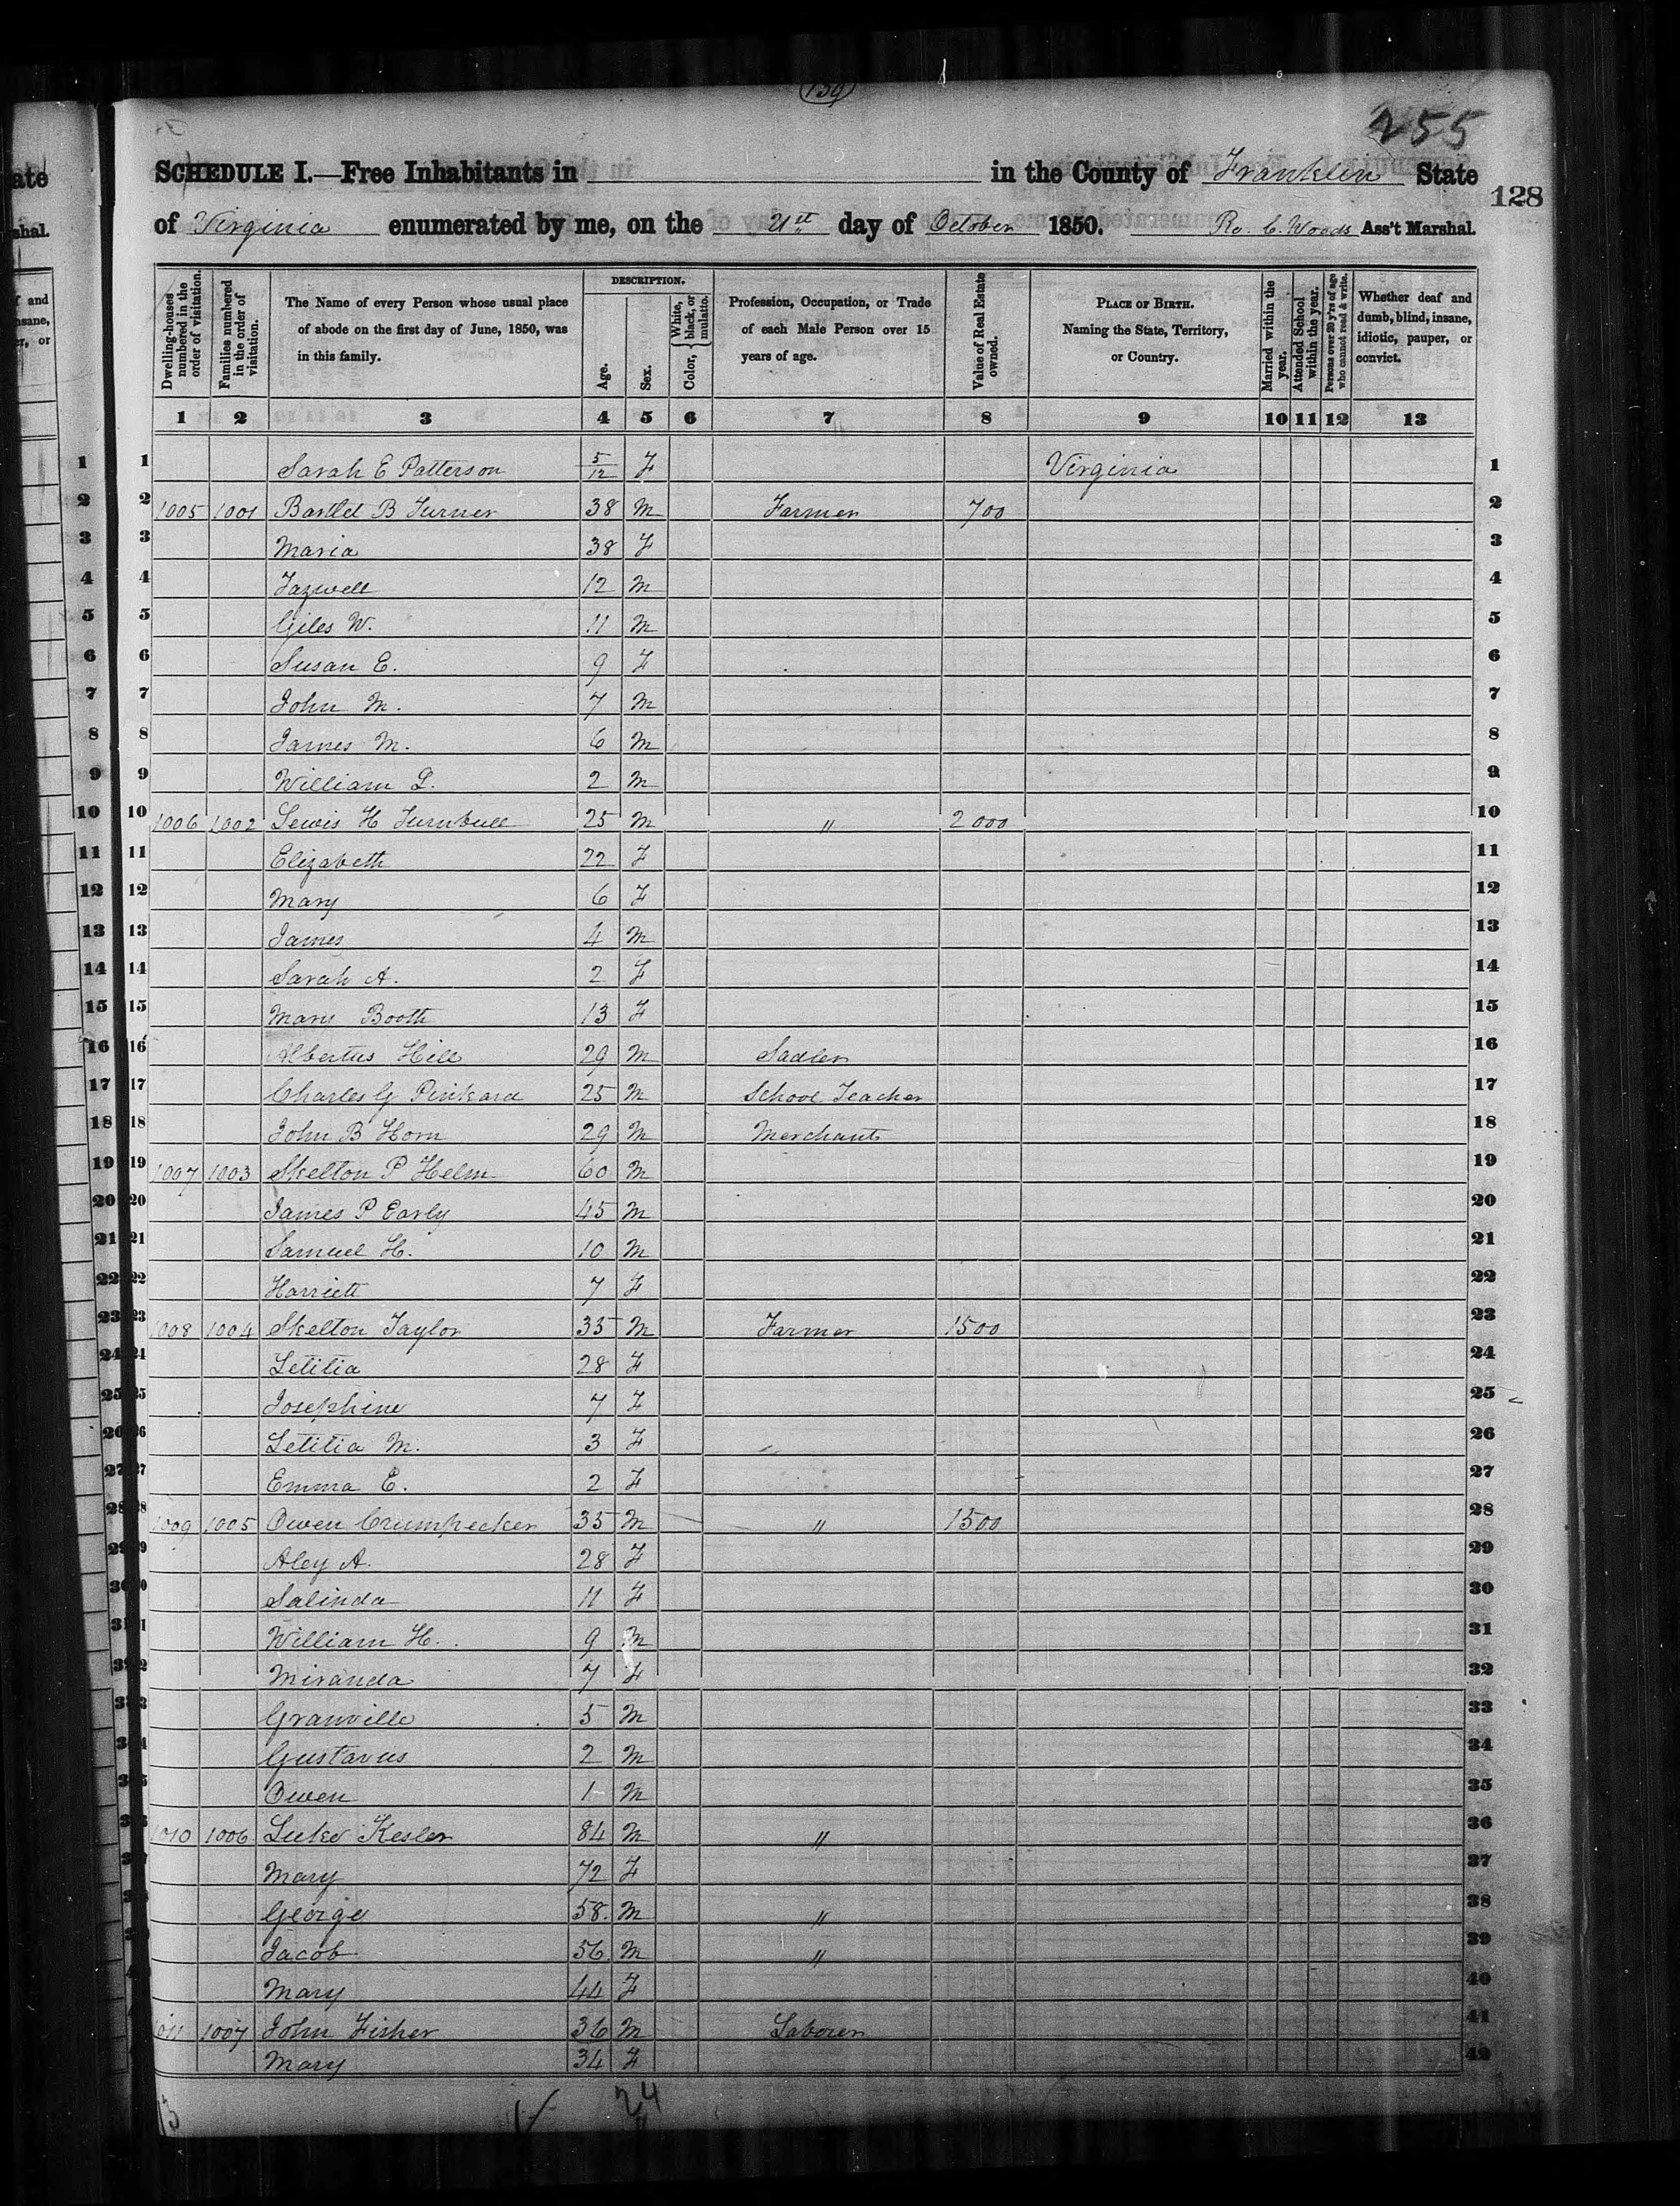 139
255
SCHEDULE I.—Free Inhabitants in in the County of Franklin State
128
of Virginia enumerated by me, on the 21st day of October 1850. Ro. C. Woods Ass't Marshal.
Dwelling-houses numbered in the order of visitation.
Families numbered in the order of visitation.
The Name of every Person whose usual place of abode on the first day of June, 1850, was in this family.
DESCRIPTION.
Age.
Sex.
Color, { White, black, or mulatto.
Profession, Occupation, or Trade of each Male Person over 15 years of age.
Value of Real Estate owned.
PLACE OF BIRTH. Naming the State, Territory, or Country.
Married within the year.
Attended School within the year.
Persons over 20 y'rs of age who cannot read & write.
Whether deaf and dumb, blind, insane, idiotic, pauper, or convict.
1 2 3 4 5 6 7 8 9 10 11 12 13
1 Sarah E Patterson 5/12 F Virginia 1
2 1005 1001 Bartlet B Turner 38 M Farmer 700 2
3 Maria 38 F 3
4 Tazwell 12 M 4
5 Giles W. 11 M 5
6 Susan E. 9 F 6
7 John M. 7 M 7
8 James M. 6 M 8
9 William L. 2 M 9
10 1006 1002 Lewis H Turnbull 25 M " 2000 10
11 Elizabeth 22 F 11
12 Mary 6 F 12
13 James 4 M 13
14 Sarah A. 2 F 14
15 Mary Booth 13 F 15
16 Albertus Hill 29 M Sadler 16
17 Charles G Pinkard 25 M School Teacher 17
18 John B Horn 29 M Merchant 18
19 1007 1003 Skelton P Helm 60 M 19
20 James P Early 45 M 20
21 Samuel H. 10 M 21
22 Harriett 7 F 22
23 1008 1004 Skelton Taylor 35 M Farmer 1500 23
24 Letitia 28 F 24
25 Josephine 7 F 25
26 Letitia M. 3 F 26
27 Emma E. 2 F 27
28 1009 1005 Owen Crumpecker 35 M " 1500 28
29 Aley A. 28 F 29
30 Salinda 11 F 30
31 William H. 9 M 31
32 Miranda 7 F 32
33 Granville 5 M 33
34 Gustavus 2 M 34
35 Owen 1 M 35
1010 1006 Luke Kesler 84 M " 36
Mary 72 F 37
George 58 M " 38
Jacob 56 M " 39
Mary 44 F 40
1011 1007 John Fisher 36 M Laborer 41
Mary 34 F 42
24